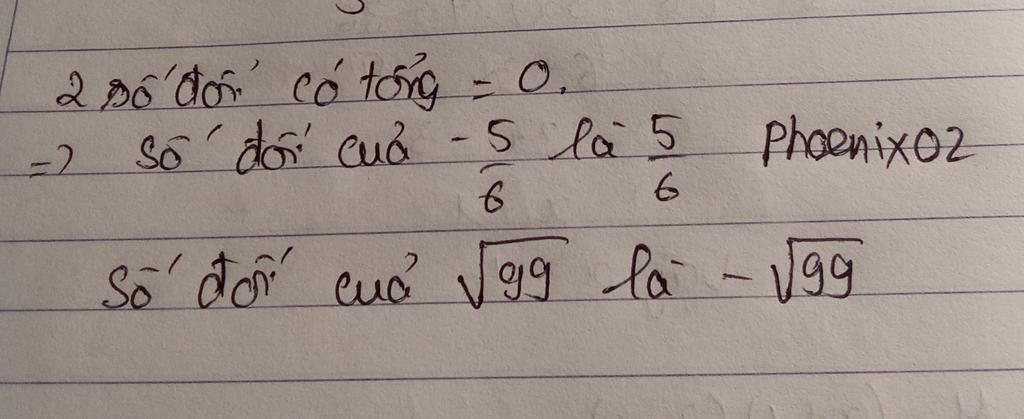 2 số đối có tổng = 0.
=> số đối của -5/6 là 5/6 Phoenix02
Số đối của √99 là -√99